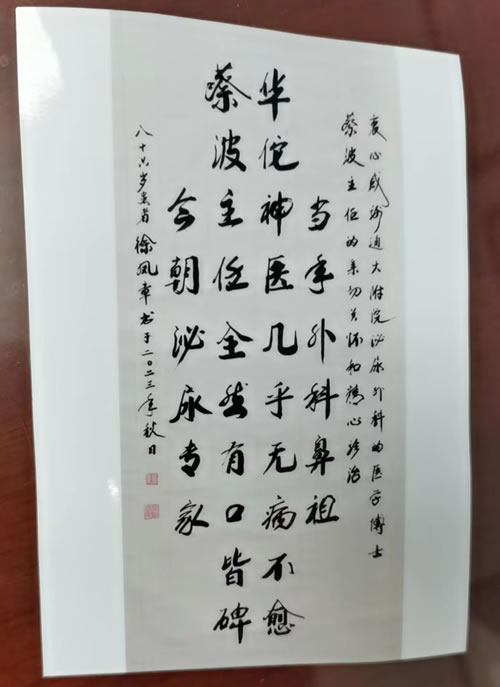 衷心感谢通大附院泌尿外科的医学博士
蔡波主任的亲切关怀和精心诊治
当年外科鼻祖
华佗神医几乎无病不愈
蔡波主任全然有口皆碑
今朝泌尿专家
八十六岁患者徐凤章书于二〇二三年秋日